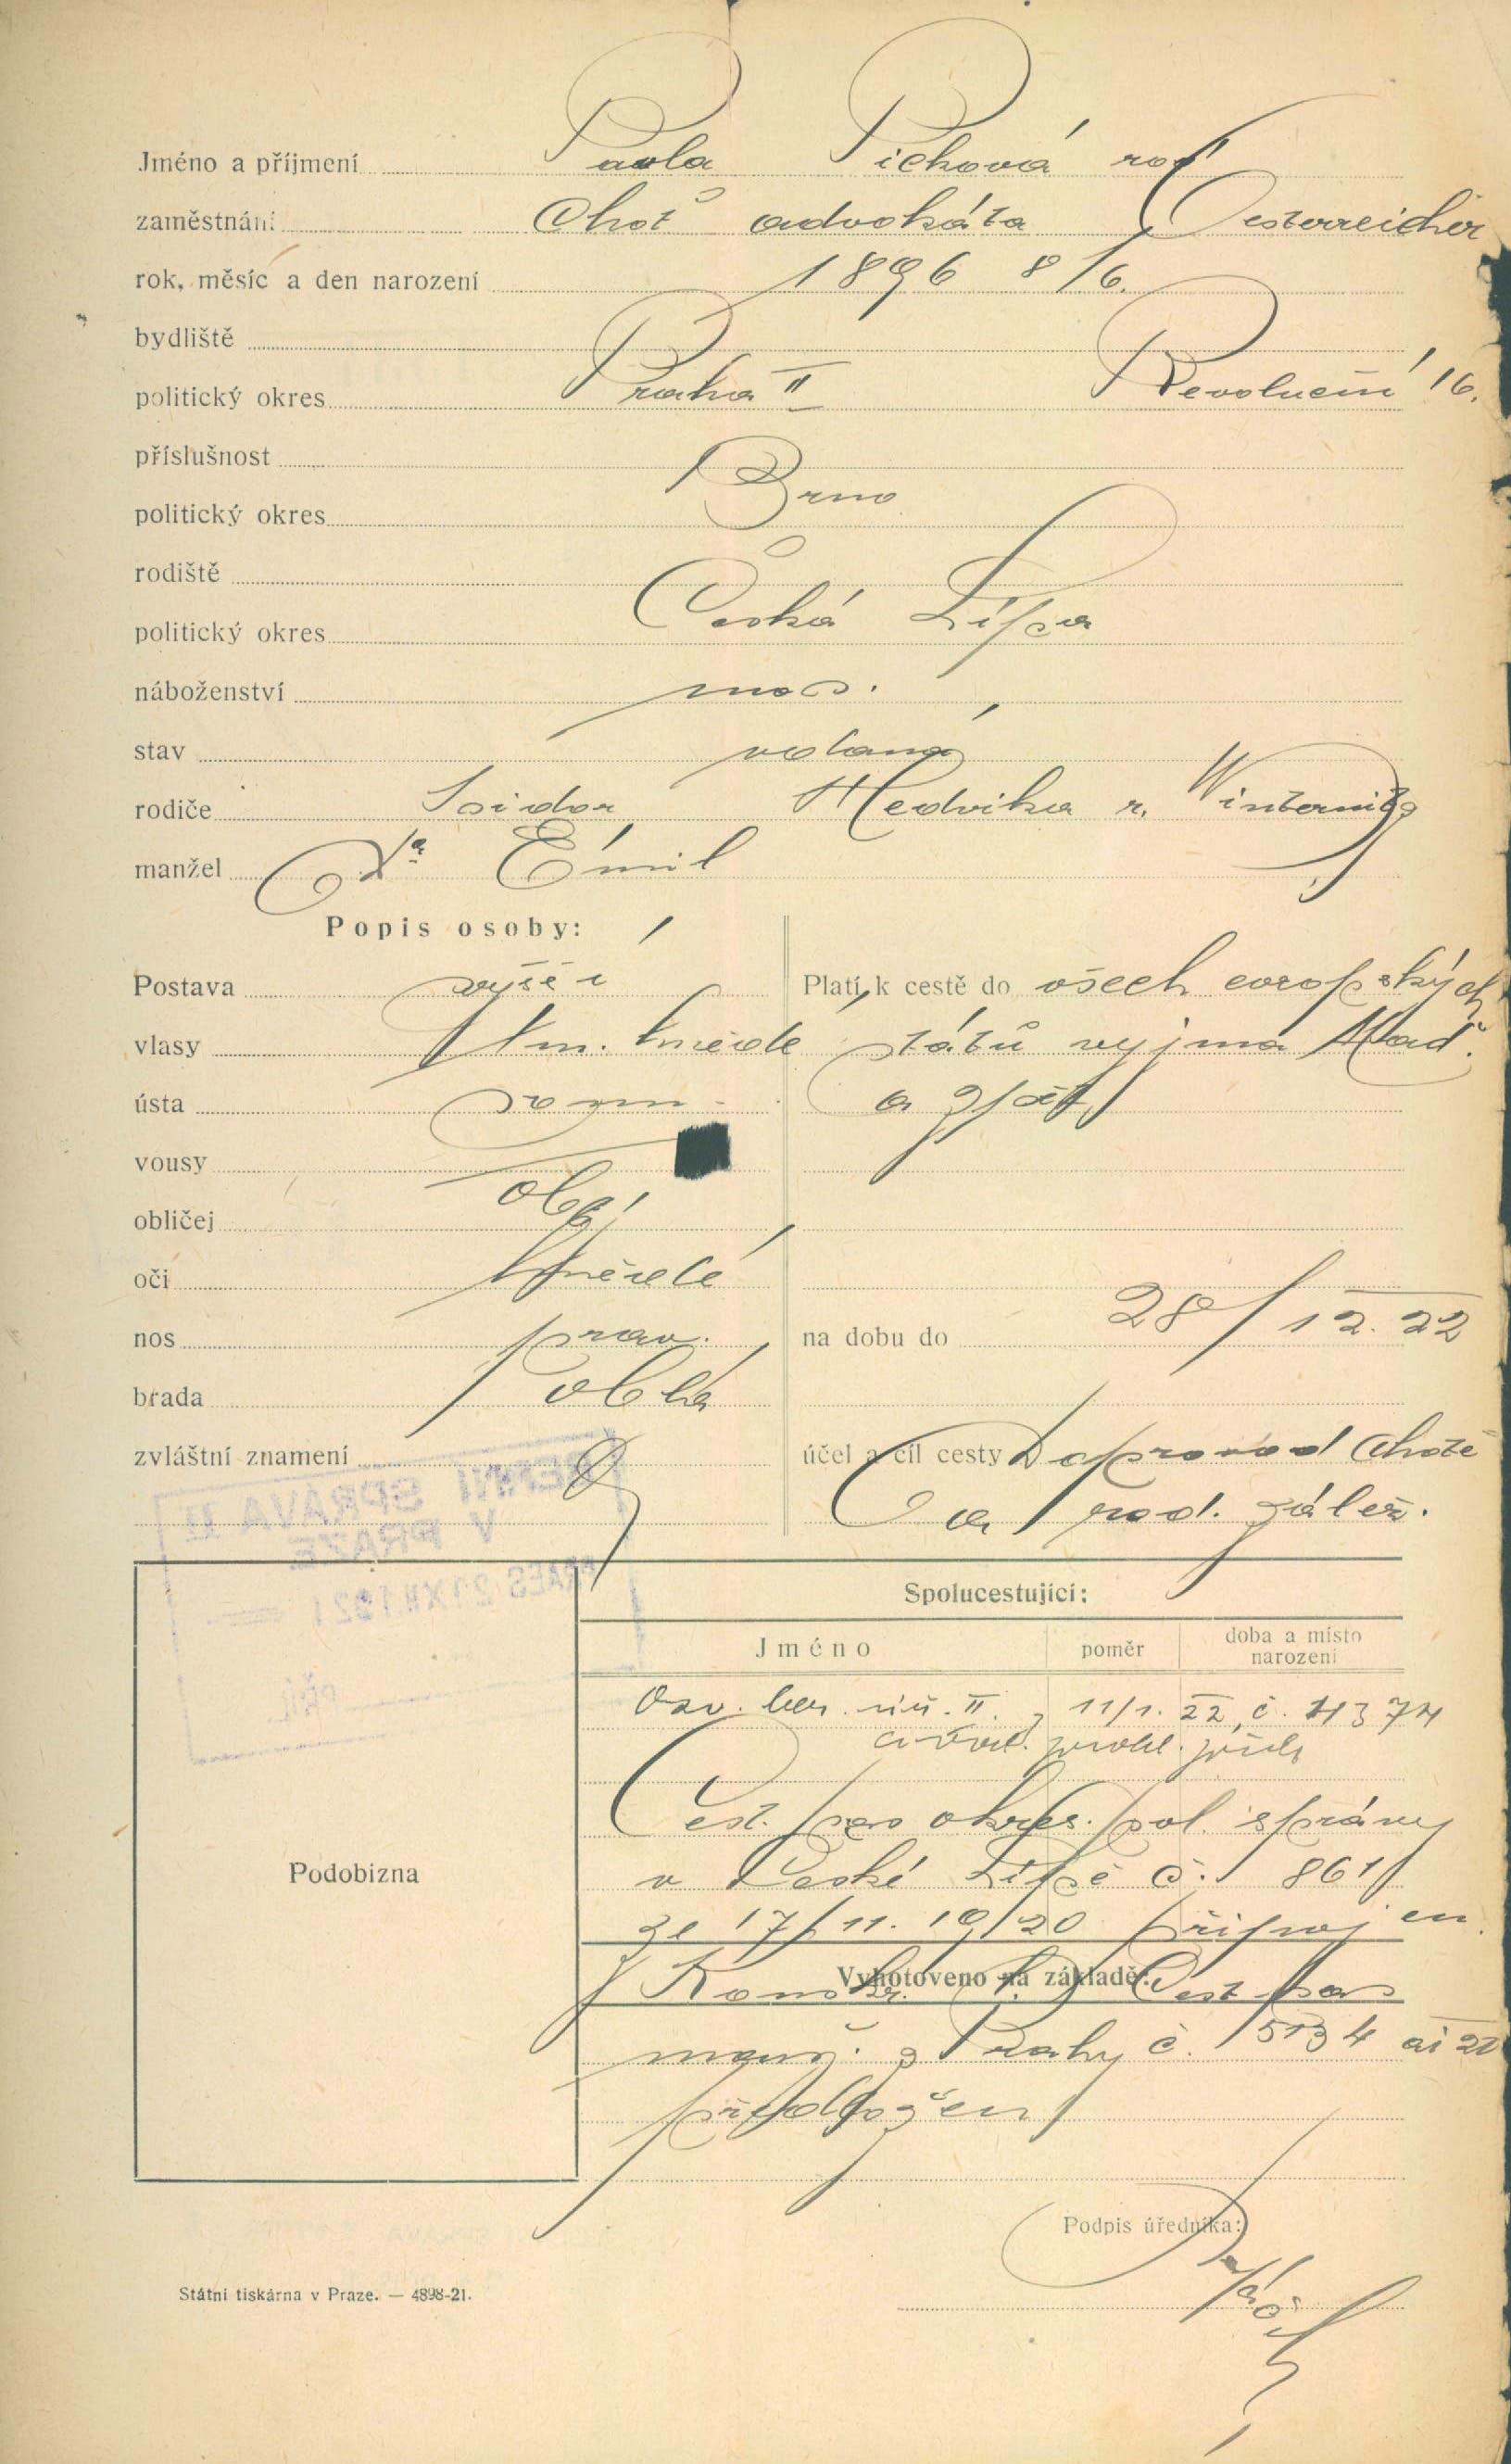 Jméno a příjmení Paula Picková roz
zaměstnání Choť advokáta Oesterreicher
rok, měsíc a den narození 1896 8/6.
bydliště
politický okres Praha II Revoluční 16.
příslušnost
politický okres Brno
rodiště
politický okres Česká Lípa
náboženství mos.
stav vdaná
rodiče Isidor Hedvika r. Winternitz
manžel Dr Emil
Popis osoby:
Postava vyšší
vlasy tm. hnědé
ústa
vousy
obličej obl.
oči hnědé
nos prav.
brada oblá
zvláštní znamení
Platí k cestě do všech evropských
států vyjma Maď.
a zpět
na dobu do 28/12. 22
účel a cíl cesty Doprovod chotě
a rod. zálež.
ZEMNÍ SPRÁVA II
V PRAZE
PRAES 21 XII. 1921
Příl.
Podobizna
Spolucestující:
Jméno poměr doba a místo narození
Osv. ber. II. z 11/1. 22, č.
Cest. pas okres. pol. správy
v České Lípě č. 861
ze 17/11. 1920 připojen
Vyhotoveno na základě:
Konskr. Cest pas
manž. z Prahy č. 5134 ai 21
předložen
Podpis úředníka:
Státní tiskárna v Praze. — 4898-21.